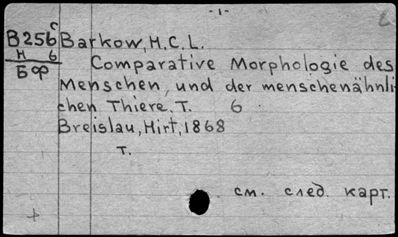 -1-
B256 C Barkow, H.C.L.
H 6
БФ
Comparative Morphologie des
Menschen, und der menschenähnli
chen Thiere. T. 6
Breislau, Hirt, 1868
T.
см. след. карт.